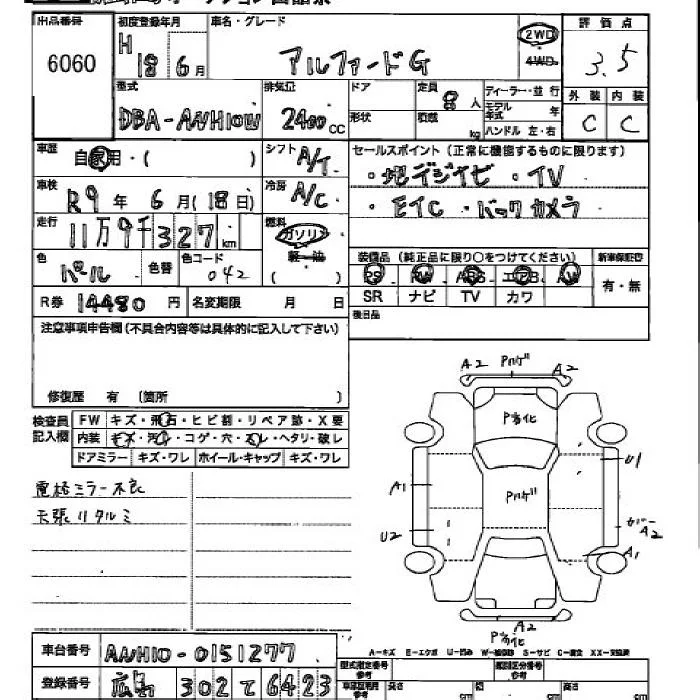 出品番号 初度登録年月 車名・グレード 評価点
6060 H 18 6月 アルファードG 2WD 4WD 3.5
型式 排気量 ドア 定員 ディーラー・並行 外装 内装
DBA-ANH10W 2400cc 形状 8人 積載 kg モデル年式 年 ハンドル 左・右 C C
車歴 自家用・( ) シフト A/T セールスポイント(正常に機能するものに限ります)
車検 R9年6月(18日) 冷房 A/C ・地デジナビ ・TV
・ETC ・バックカメラ
走行 11万9千327km 燃料 ガソリン 軽油
装備品(純正品に限り○をつけてください) 新車保証書
色 パール 色替 色コード 042 PS PW ABS エアB AW 有・無
SR ナビ TV カワ
R券 14480円 名変期限 月 日 後日品
注意事項申告欄(不具合内容等は具体的に記入して下さい)
修復歴 有 (箇所 )
検査員記入欄 FW キズ・飛石・ヒビ割・リペア跡・X要
内装 キズ・汚れ・コゲ・穴・スレ・ヘタリ・破レ
ドアミラー キズ・ワレ ホイール・キャップ キズ・ワレ
電格ミラー不良
天張リタルミ
A2 Pハゲ A2
P劣化
U1
A1 Pハゲ
U2 A2
A1
A2
P劣化
A-キズ E-エクボ U-凹み W-補修跡 S-サビ C-腐食 XX-交換済
車台番号 ANH10-0151277 型式指定番号 参考 類別区分番号 参考
登録番号 広島 302 て 6423 長さ cm 幅 cm 高さ cm